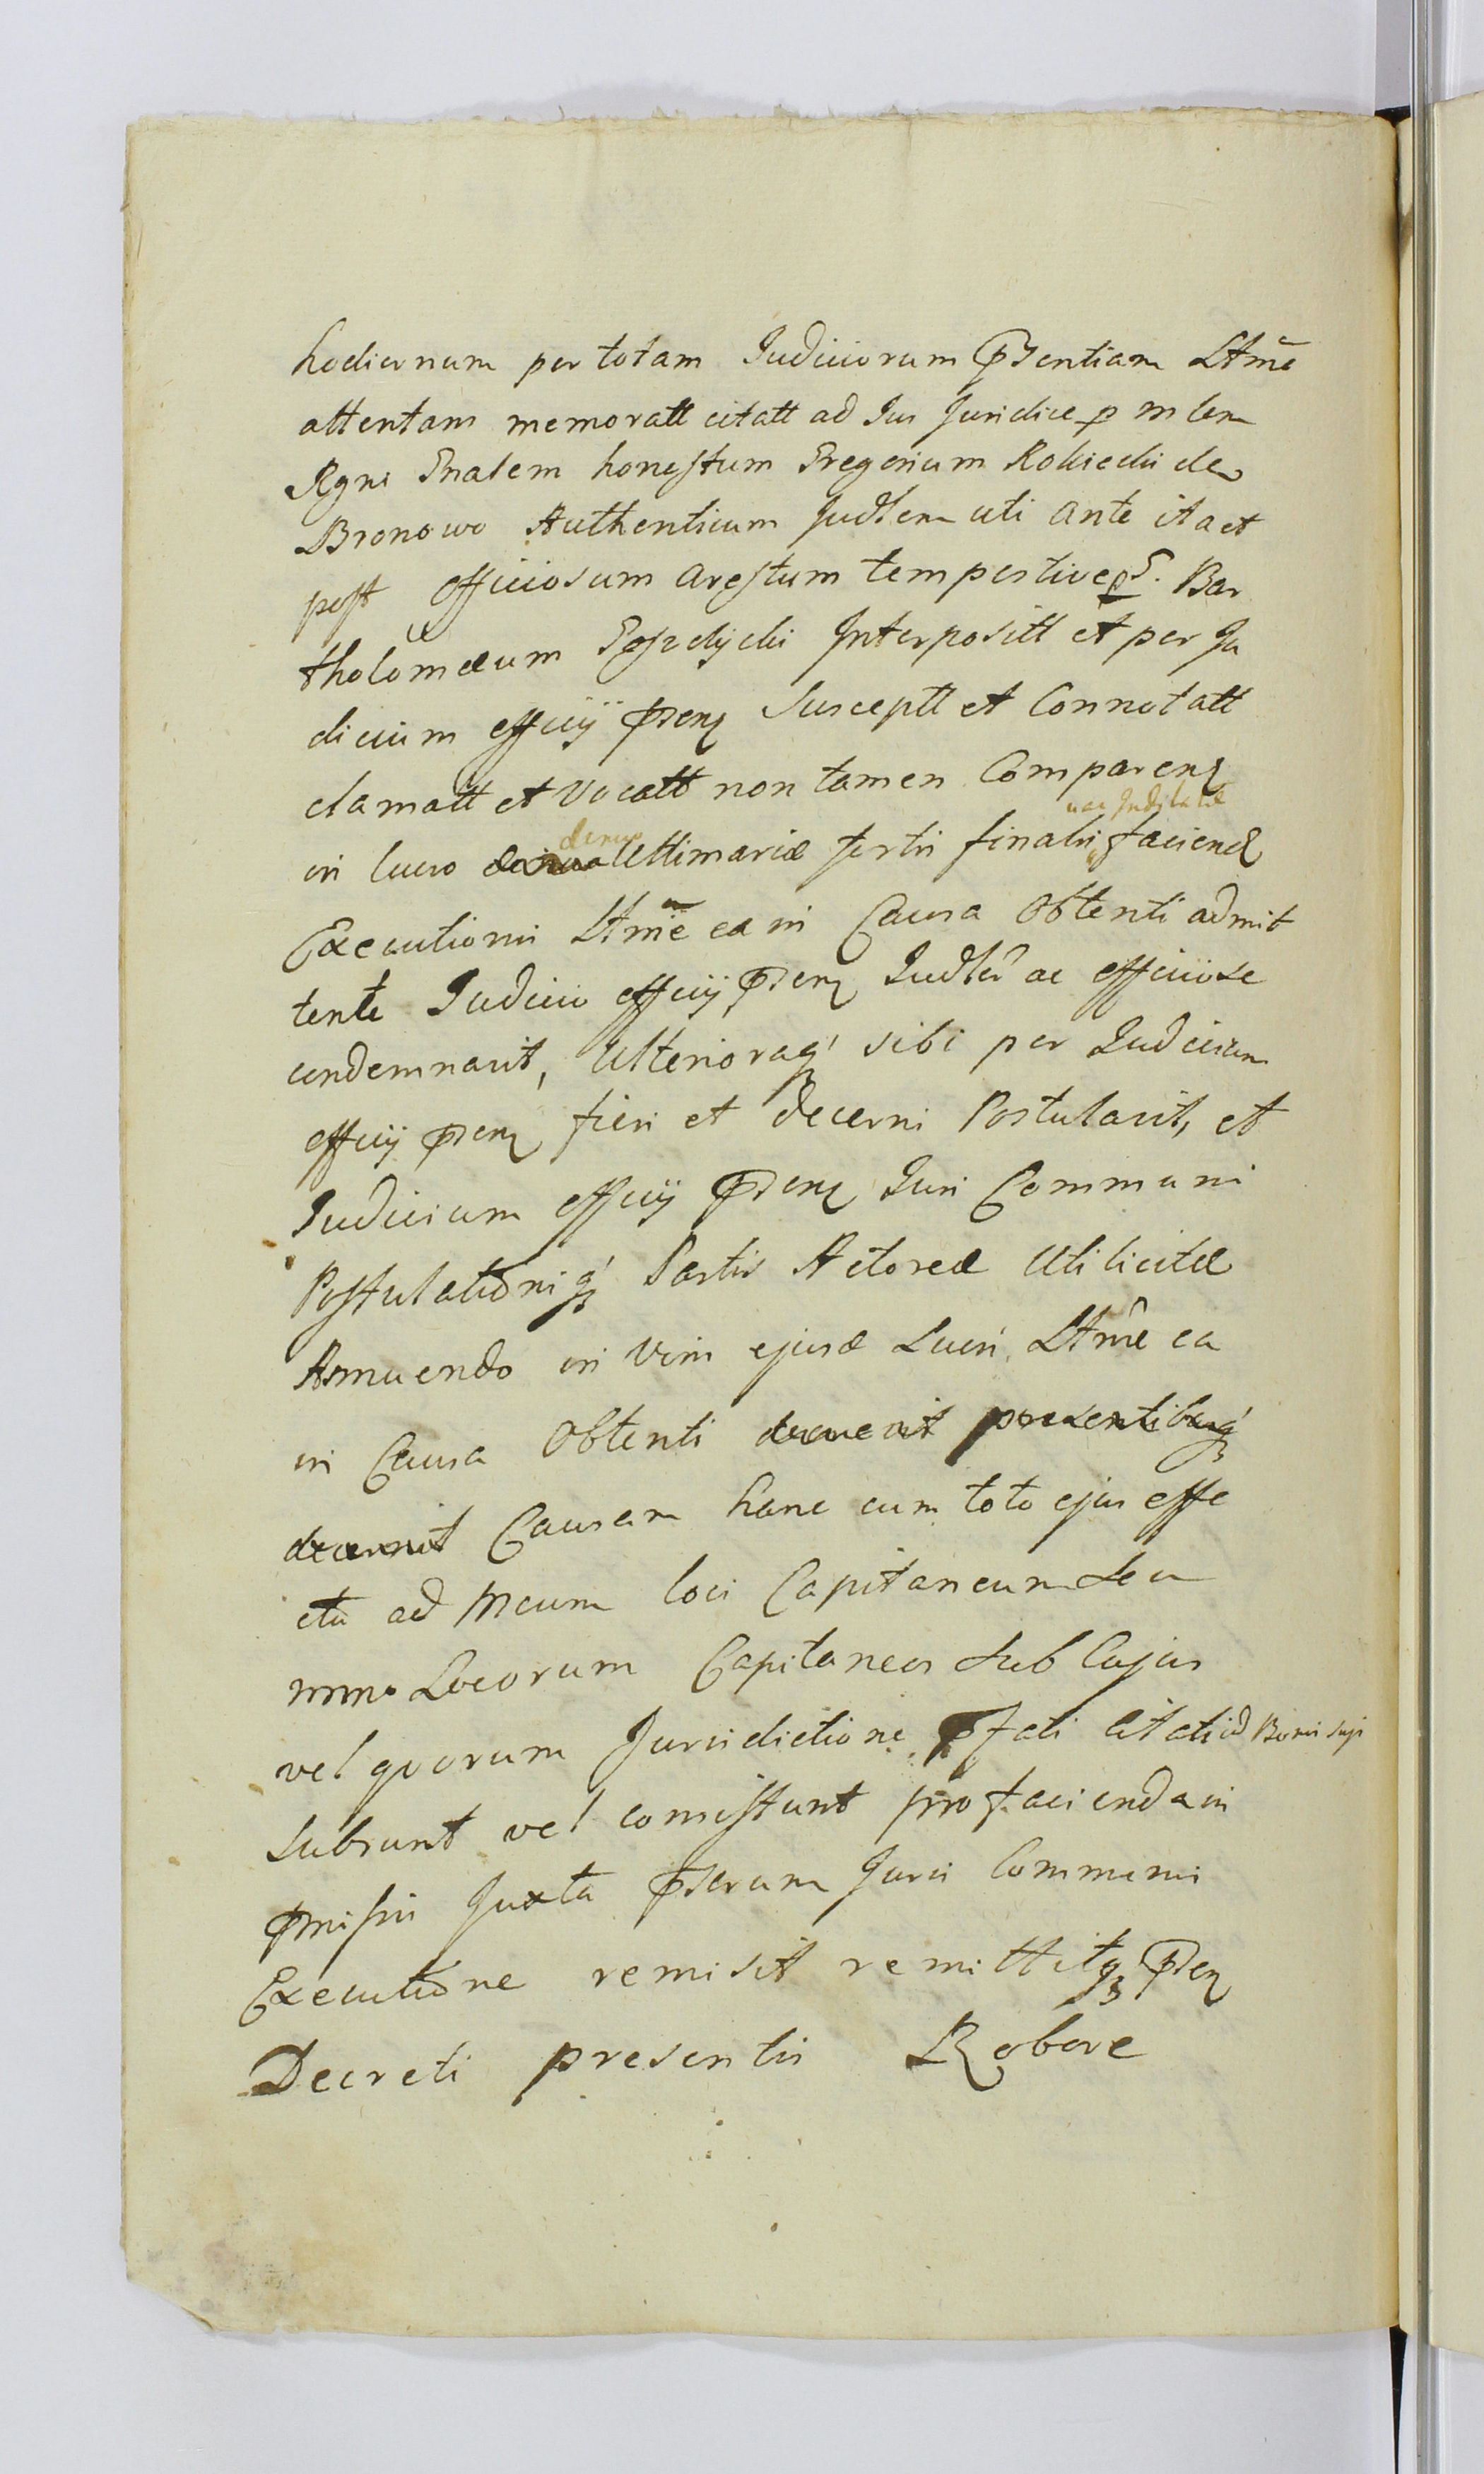 hodiernum per totam Judiciorum pſsentiam Ltmẽ
attentam memoratt citatt ad Jus Juridice p mlem
Rgni Gnalem honeſtum Gregorium Rokicki de
Bronowo Authenticum Judlem uti ante ita et
poſt officiosum areſtum tempestive p G. Bar
tholomæum Interpositt et per Ju
dicium officij psens Susceptt et Connotatt
clamatt et vocatt non tamen Comparens
nec Judicatæ
denuo
in lucro Ultimariæ sortis finalis faciend
Executionis Ltmẽ ea in Causa Obtenti admit
tente Judicio officij psens Judler ac officiose
condemnavit, Ulterioraq́ sibi per Judicium
officij psens fieri et decerni Postulavit, et
Judicium officij psens Juri Communi
Poſtulationiq́ Partis Actoreæ Uti licitæ
Annuendo in vim ejusd Lucri Ltmẽ ea
in Causa Obtenti decrevit presentibusq́
decernit Causam hanc cum toto ejus effe
ctu ad Mcum loci Capitaneum seu
mmos Locorum Capitaneos sub Cujus
vel quorum Jurisdictione pfati Citati id Bonis suis
subsunt vel consiſtunt pro facienda in
pmiſsis Juxta pscrum Juris Communis
Executione remisit remittitq psen
Decreti presentis Robore